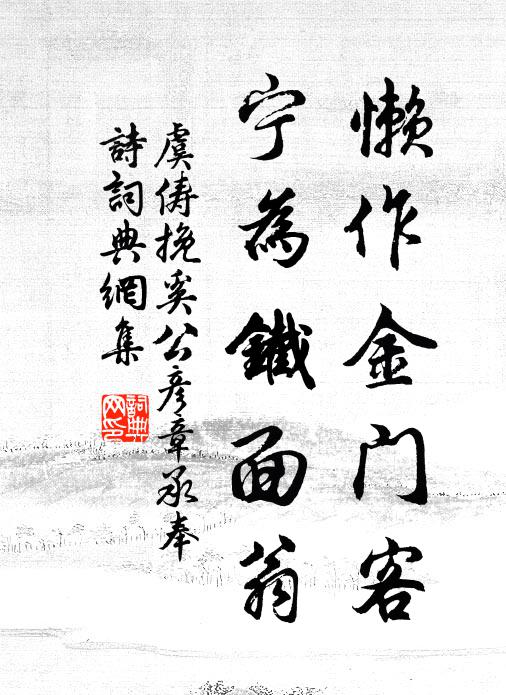 懒作金门客
宁為鐵面翁
虞俦挽奚公彦章承奉
詩詞典網集
詞典网印